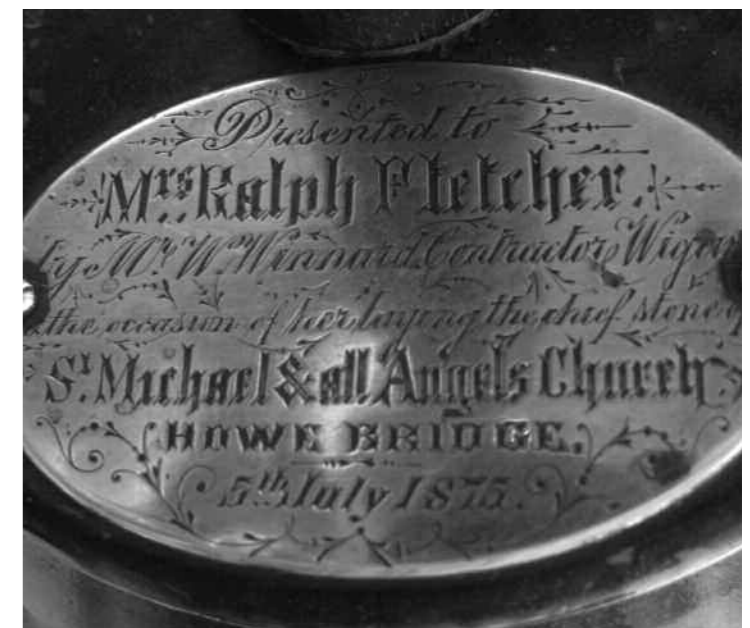 Presented to
Mrs. Ralph Fletcher.
by Mr. Wm. Winnard, Contractor, Wigan
the occasion of her laying the chief stone of
St. Michael & all Angels Church.
HOWE BRIDGE.
5th July 1875.